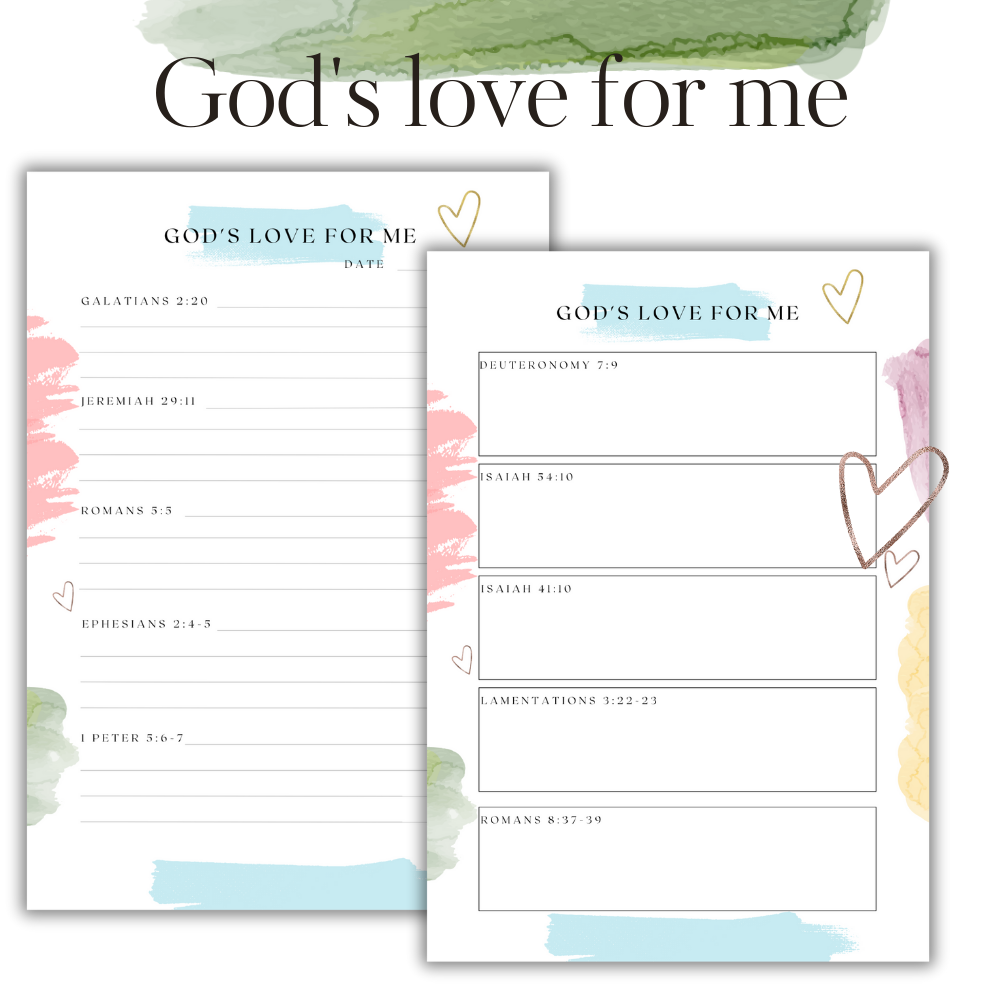 God's love for me
GOD'S LOVE FOR ME
DATE
GALATIANS 2:20
JEREMIAH 29:11
ROMANS 5:5
EPHESIANS 2:4-5
1 PETER 5:6-7
GOD'S LOVE FOR ME
DEUTERONOMY 7:9
ISAIAH 54:10
ISAIAH 41:10
LAMENTATIONS 3:22-23
ROMANS 8:37-39